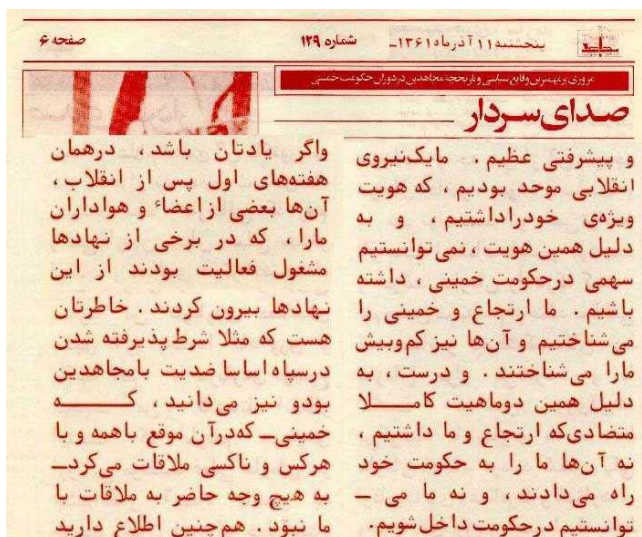 پنجشنبه ۱۱ آذرماه ۱۳۶۱ـ شماره ۱۲۹ صفحه ۶
مروری برمهمترین وقایع سیاسی و تاریخچه مجاهدین در دوران حکومت خمینی
صدای سردار
و پیشرفتی عظیم . مایک‌نیروی
انقلابی موحد بودیم ، که هویت
ویژه‌ی خودراداشتیم ، و به
دلیل همین هویت ، نمی‌توانستیم
سهمی درحکومت خمینی ، داشته
باشیم . ما ارتجاع و خمینی را
می‌شناختیم و آن‌ها نیز کم‌وبیش
مارا می‌شناختند . و درست ، به
دلیل همین دوماهیت کامـــلا
متضادی‌که ارتجاع و ما داشتیم ،
نه آن‌ها ما را به حکومت خود
راه می‌دادند ، و نه ما می ـ
توانستیم درحکومت داخل‌شویم.
واگر یادتان باشد ، درهمان
هفته‌های اول پس از انقلاب ،
آن‌ها بعضی از اعضاء و هواداران
مارا ، که در برخی از نهادها
مشغول فعالیت بودند از این
نهادها بیرون کردند . خاطرتان
هست که مثلا شرط پذیرفته شدن
درسپاه اساسا ضدیت بامجاهدین
بودو نیز می‌دانید ، کـــــه
خمینی‌ـ که‌درآن موقع باهمه و با
هرکس و ناکسی ملاقات می‌کردـ
به هیچ وجه حاضر به ملاقات با
ما نبود . هم‌چنین اطلاع دارید